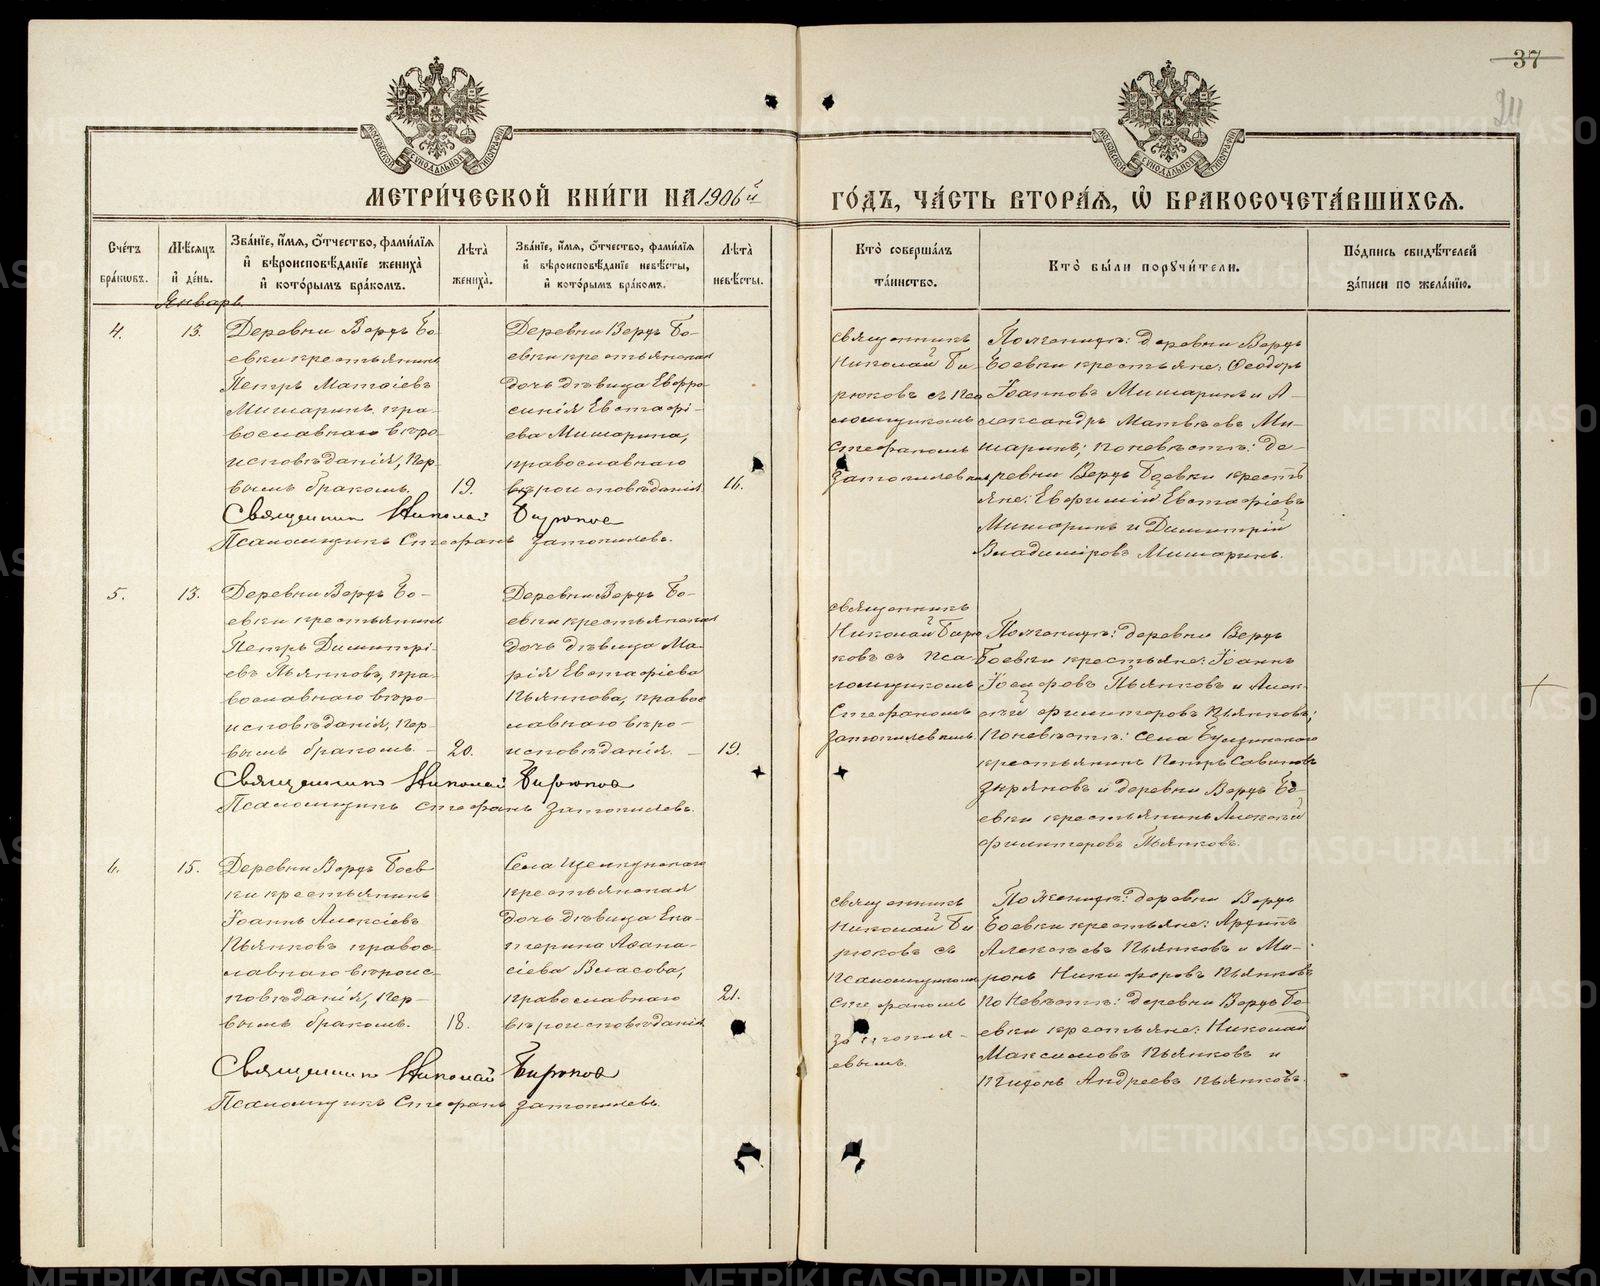 37
МОСКОВСКОЙ СѴНОДАЛЬНОЙ ТИПОГРАФІИ
МОСКОВСКОЙ СѴНОДАЛЬНОЙ ТИПОГРАФІИ
МЕТРИ́ЧЕСКОЙ КНИ́ГИ НА 1906й
ГО́ДЪ, ЧА́СТЬ ВТОРА́Я, Ѡ БРАКОСОЧЕТА́ВШИХСЯ.
Сче́тъ бра́ковъ.
Мѣ́сяцъ и́ де́нь.
Зва́ніе, и́мя, о́тчество, фами́лія и́ вѣроисповѣ́даніе жениха̀ и́ кото́рымъ бра́комъ.
Лѣ́та жениха̀.
Зва́ніе, и́мя, о́тчество, фами́лія и́ вѣроисповѣ́даніе невѣ́сты, и́ кото́рымъ бра́комъ.
Лѣ́та невѣ́сты.
Кто̀ соверша́лъ та́инство.
Кто̀ бы́ли поручи́тели.
По́дпись свидѣ́телей за́писи по жела́нію.
Январь
4.
13.
Деревни Верхъ Бо-
евки крестьянинъ
Петръ Матѳіевъ
Мишаринъ, пра-
вославнаго вѣро
исповѣданія, пер-
вымъ бракомъ.
19.
Деревни Верхъ Бо-
евки крестьянская
дочь дѣвица Евфро
синія Евстафі-
ева Мишарина,
православнаго
вѣроисповѣданія
16.
священникъ
Николай Би-
рюковъ съ пса
ломщикомъ
Стефаномъ
Затопляевымъ
По женихѣ: деревни Верхъ
Боевки крестьяне: Ѳеодоръ
Іоанновъ Мишаринъ и А-
лександръ Матвѣевъ Ми-
шаринъ; по невѣстѣ: де-
ревни Верхъ Боевки кресть
яне: Евфимій Евстафіевъ
Мишаринъ и Димитрій
Владиміровъ Мишаринъ.
Священникъ Николай Бирюковъ
Псаломщикъ Стефанъ Затопляевъ.
5.
13.
Деревни Верхъ Бо-
евки крестьянинъ
Петръ Димитрі-
евъ Пьянковъ, пра-
вославнаго вѣро
исповѣданія, пер-
вымъ бракомъ
20.
Деревни Верхъ Бо-
евки крестьянская
дочь дѣвица Ма-
рія Евстафіева
Пьянкова, правос
лавнаго вѣро-
исповѣданія
19.
священникъ
Николай Бирю
ковъ съ пса-
ломщикомъ
Стефаномъ
Затопляевымъ.
По женихѣ: деревни Верхъ
Боевки крестьяне: Іоаннъ
Іосифовъ Пьянковъ и Алек-
сѣй Пьянковъ;
по невѣстѣ: села
крестьянинъ Петръ Савиновъ
Зыряновъ и деревни Верхъ Бо-
евки крестьянинъ Алексѣй
Пьянковъ.
Священникъ Николай Бирюковъ
Псаломщикъ Стефанъ Затопляевъ.
6.
15.
Деревни Верхъ Боев
ки крестьянинъ
Іоаннъ Алексіевъ
Пьянковъ правос
лавнаго вѣроис
повѣданія, пер-
вымъ бракомъ.
18.
Села Щелкунскаго
крестьянская
дочь дѣвица Ека-
терина Аѳана-
сіева Власова,
православнаго
вѣроисповѣданія
21.
священникъ
Николай Би
рюковъ съ
псаломщикомъ
Стефаномъ
Затопля-
евымъ
По женихѣ: деревни Верхъ
Боевки крестьяне:
Алексѣевъ Пьянковъ и Ми-
ронъ Никифоровъ Пьянковъ
по невѣстѣ: деревни Верхъ Бо-
евки крестьяне: Николай
Максимовъ Пьянковъ и
Андреевъ Пьянковъ.
Священникъ Николай Бирюковъ
Псаломщикъ Стефанъ Затопляевъ.
METRIKI.GASO-URAL.RU